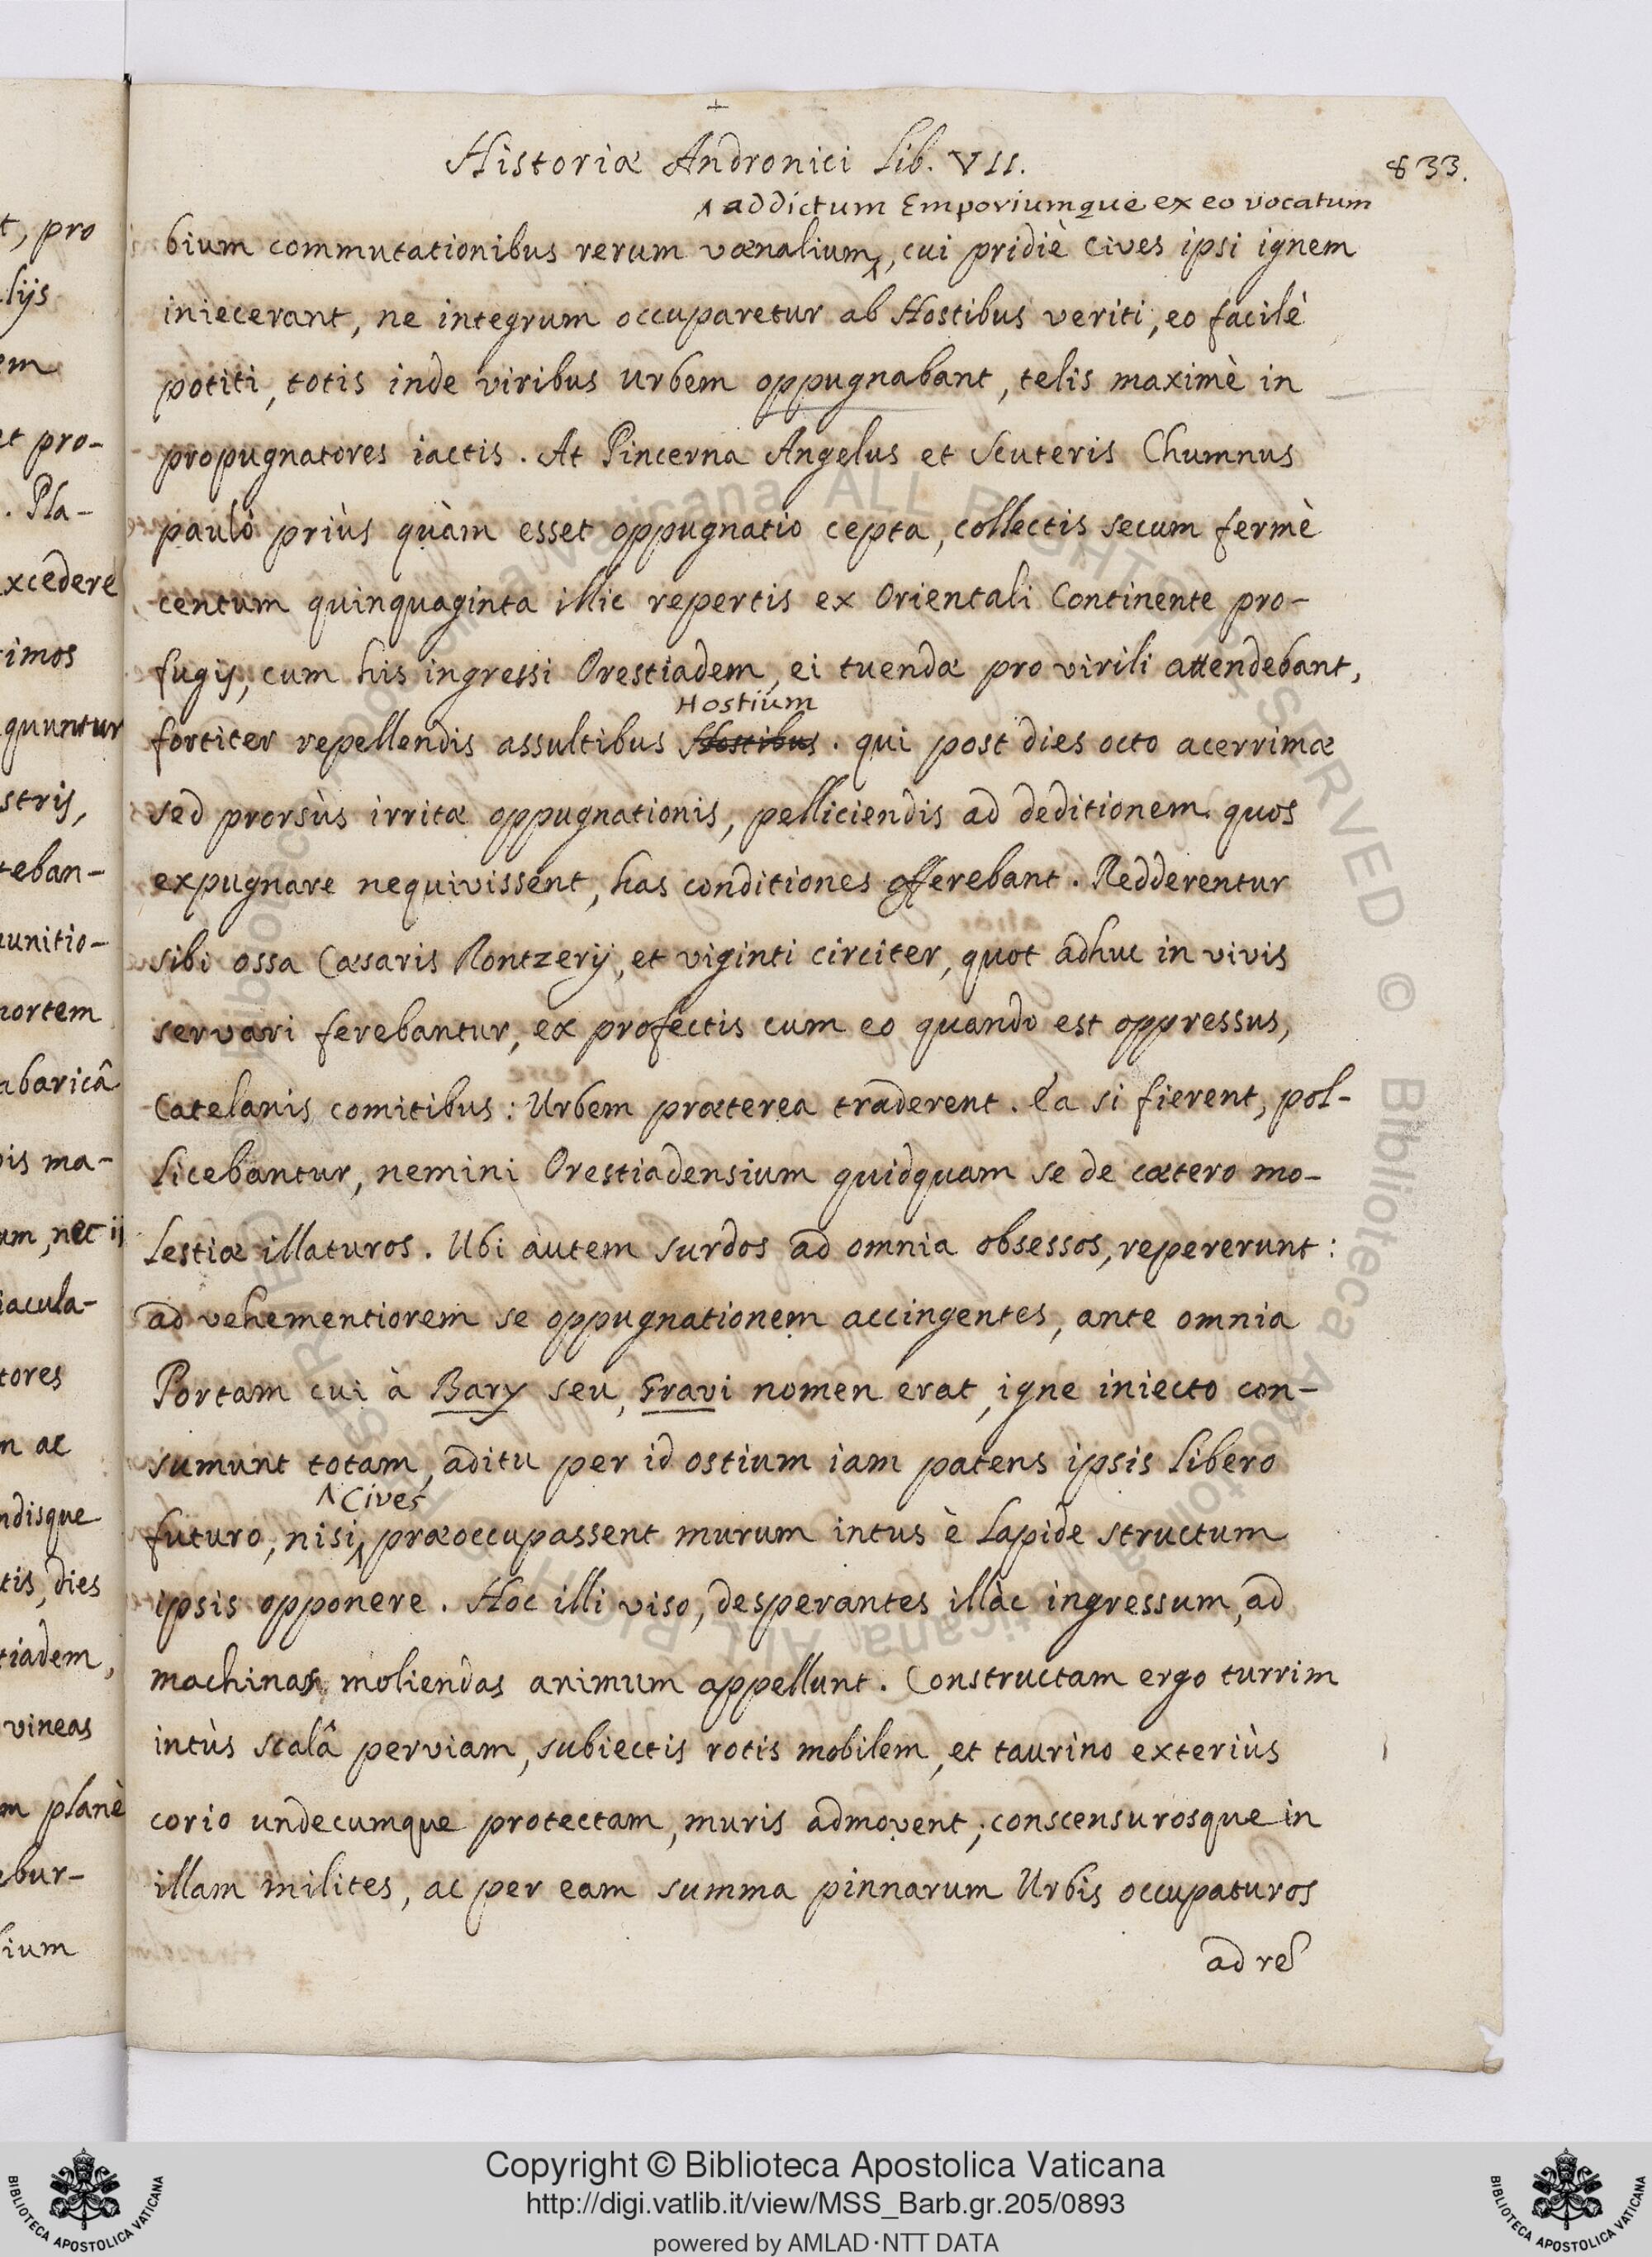 Historiæ Andronici Lib. VII.
833.
addictum Emporiumque ex eo vocatum
bium commutationibus rerum vœnalium, cui pridiè Cives ipsi ignem
iniecerant, ne integrum occuparetur ab Hostibus veriti, eo facilè
potiti, totis inde viribus Urbem oppugnabant, telis maximè in
propugnatores iactis. At Pincerna Angelus et Scuteris Chumnus
paulò priùs quàm esset oppugnatio cepta, collectis secum fermè
centum quinquaginta illic repertis ex Orientali Continente pro-
fugis, cum his ingressi Orestiadem, ei tuendæ pro virili attendebant,
Hostium
fortiter repellendis assultibus Hostibus. qui post dies octo acerrimæ
sed prorsùs irritæ oppugnationis, pelliciendis ad deditionem quos
expugnare nequivissent, has conditiones offerebant. Redderentur
sibi ossa Cæsaris Rontzerij, et viginti circiter, quot adhuc in vivis
servari ferebantur, ex profectis cum eo quando est oppressus,
Catelanis comitibus: Urbem præterea traderent. Ea si fierent, pol-
licebantur, nemini Orestiadensium quidquam se de cætero mo-
lestiæ illaturos. Ubi autem surdos ad omnia obsessos, repererunt:
ad vehementiorem se oppugnationem accingentes, ante omnia
Portam cui à Bary seu, Gravi nomen erat, igne iniecto con-
sumunt totam, aditu per id ostium iam patens ipsis libero
Cives
futuro, nisi præoccupassent murum intus è lapide structum
ipsis opponere. Hoc illi viso, desperantes illàc ingressum, ad
machinas moliendas animum appellunt. Constructam ergo turrim
intùs scalâ perviam, subiectis rotis mobilem, et taurino exteriùs
corio undecumque protectam, muris admovent; conscensurosque in
illam milites, ac per eam summa pinnarum Urbis occupaturos
ad re
t, pro
lijs
em
et pro-
. Pla-
xcedere
imos
quuntur
stris,
teban-
unitio-
mortem
abaricâ
is ma-
um, nec ij
iacula-
tores
m ac
ndisque
tis, dies
tiadem,
vineas
m planè
ebur-
ium
Copyright © Biblioteca Apostolica Vaticana
http://digi.vatlib.it/view/MSS_Barb.gr.205/0893
powered by AMLAD·NTT DATA
BIBLIOTECA APOSTOLICA VATICANA
BIBLIOTECA APOSTOLICA VATICANA